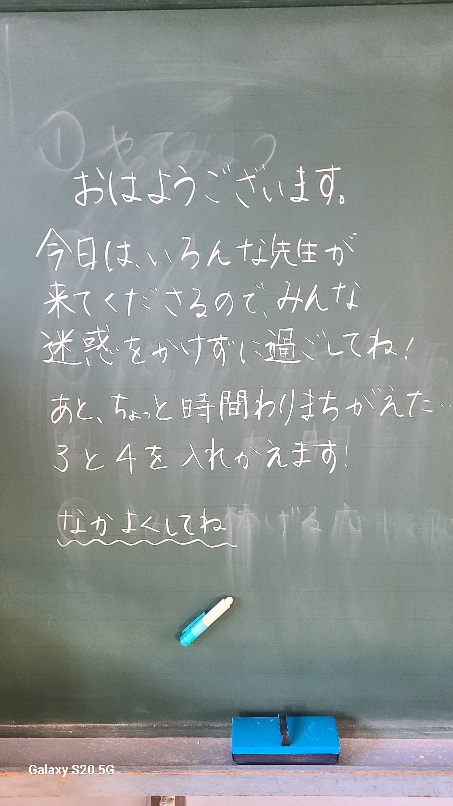 ① やってみよう
おはようございます。
今日は、いろんな先生が
来てくださるので、みんな
迷惑をかけずに過ごしてね!
あと、ちょっと時間わりまちがえた…
3と4を入れかえます!
なかよくしてね
Galaxy S20 5G